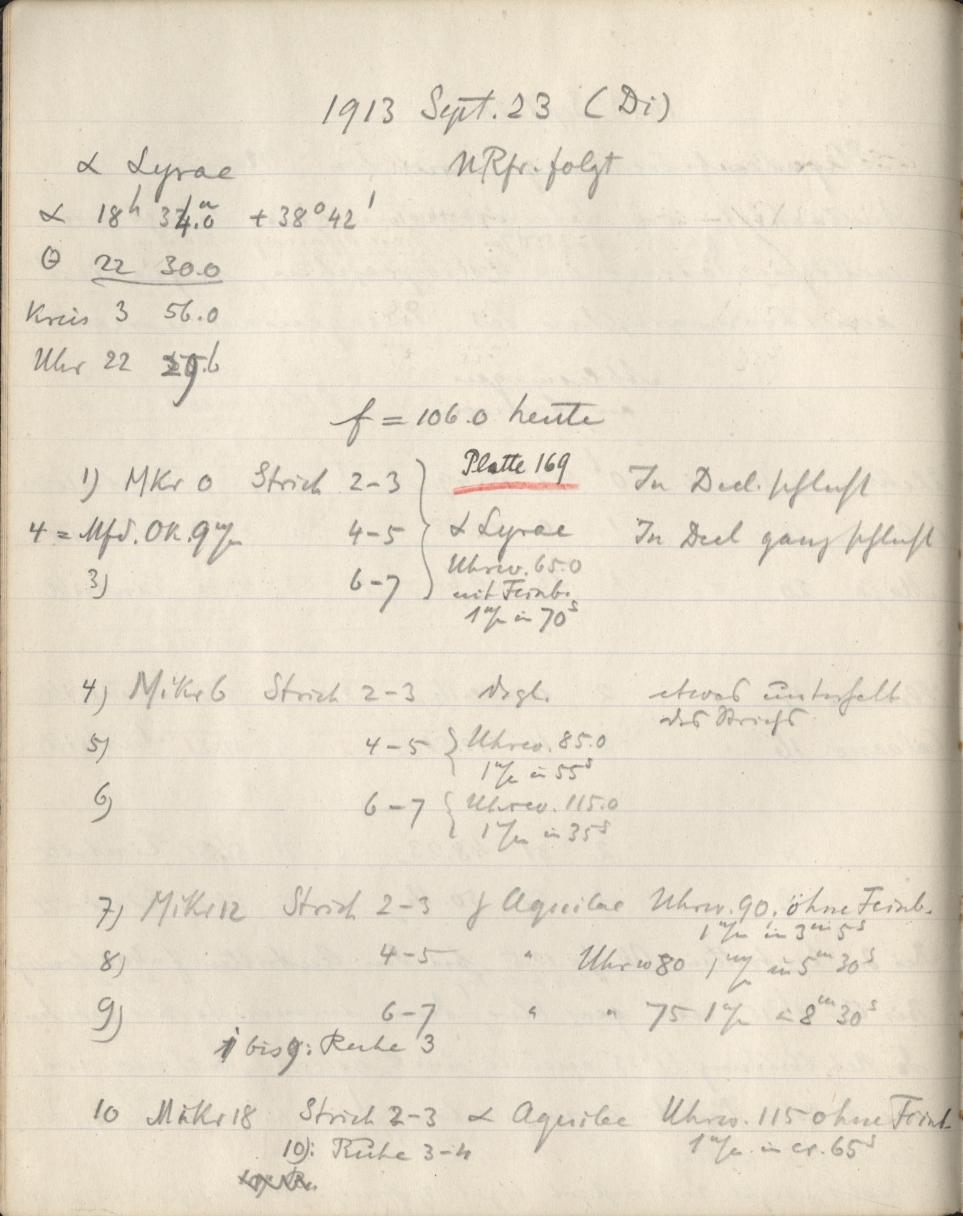 1913 Sept. 23 (Di)
α Lyrae
α 18h 34.0m + 38° 42'
Θ 22 30.0
Kreis 3 56.0
Uhr 22 29.6
f = 106.0 heute
1) Mikr 0 Strich 2-3 Platte 169 In Decl. schlecht
4-5 α Lyrae In Decl ganz schlecht
3) 6-7 Uhrw. 65.0
mit Feinb.
1 in 70s
4) Mikr 6 Strich 2-3 dsgl. etwas unterhalb
des Strichs
5) 4-5 Uhrw. 85.0
1 in 55s
6) 6-7 Uhrw. 115.0
1 in 35s
7) Mikr 12 Strich 2-3 γ Aquilae Uhrw. 90. ohne Feinb.
1 in 3m 5s
8) 4-5 " Uhrw 80 1 in 5m 30s
9) 6-7 " " 75 1 in 8m 30s
1 bis 9: Reihe 3
10 Mikr 18 Strich 2-3 α Aquilae Uhrw. 115 ohne Feinb.
10): Reihe 3-4 1 in cr. 65s